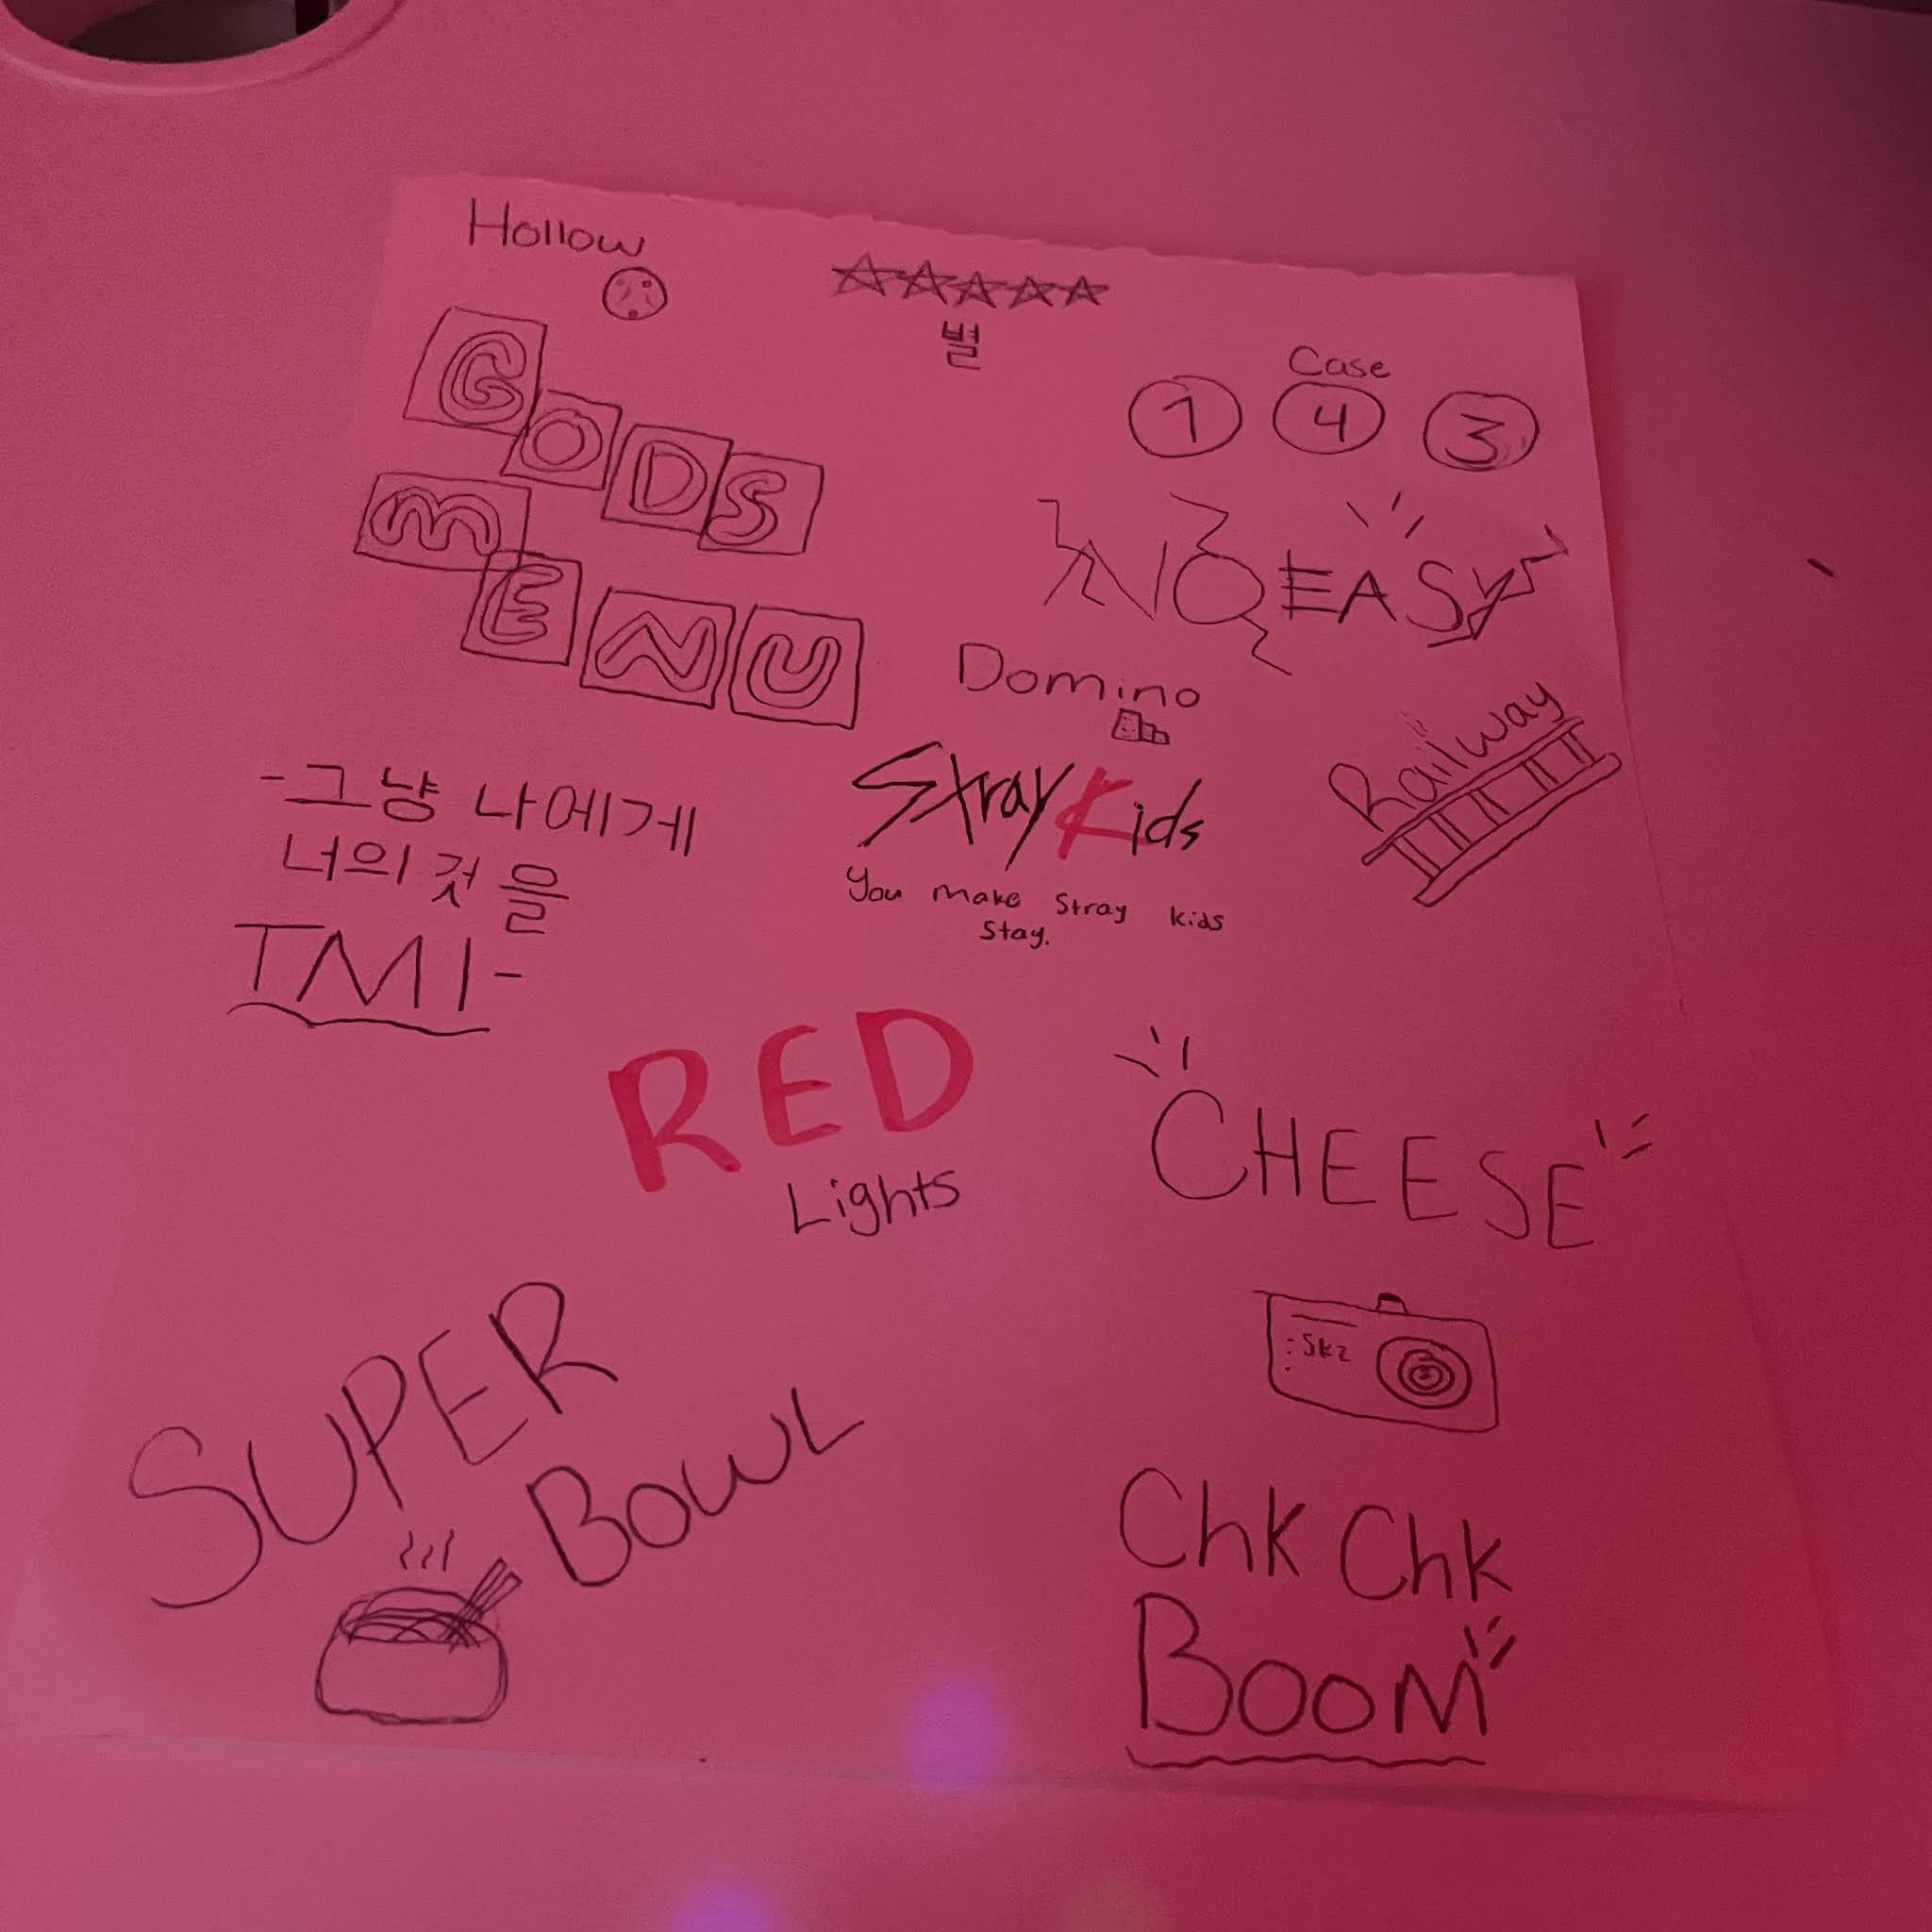 Hollow
별
GODS
MENU
Case
1 4 3
NOEASY
Domino
Railway
-그냥 나에게
너의 것을
TMI-
Stray Kids
You make Stray Kids
Stay.
RED
Lights
CHEESE
SKZ
SUPER
BOWL
Chk Chk
BOOM